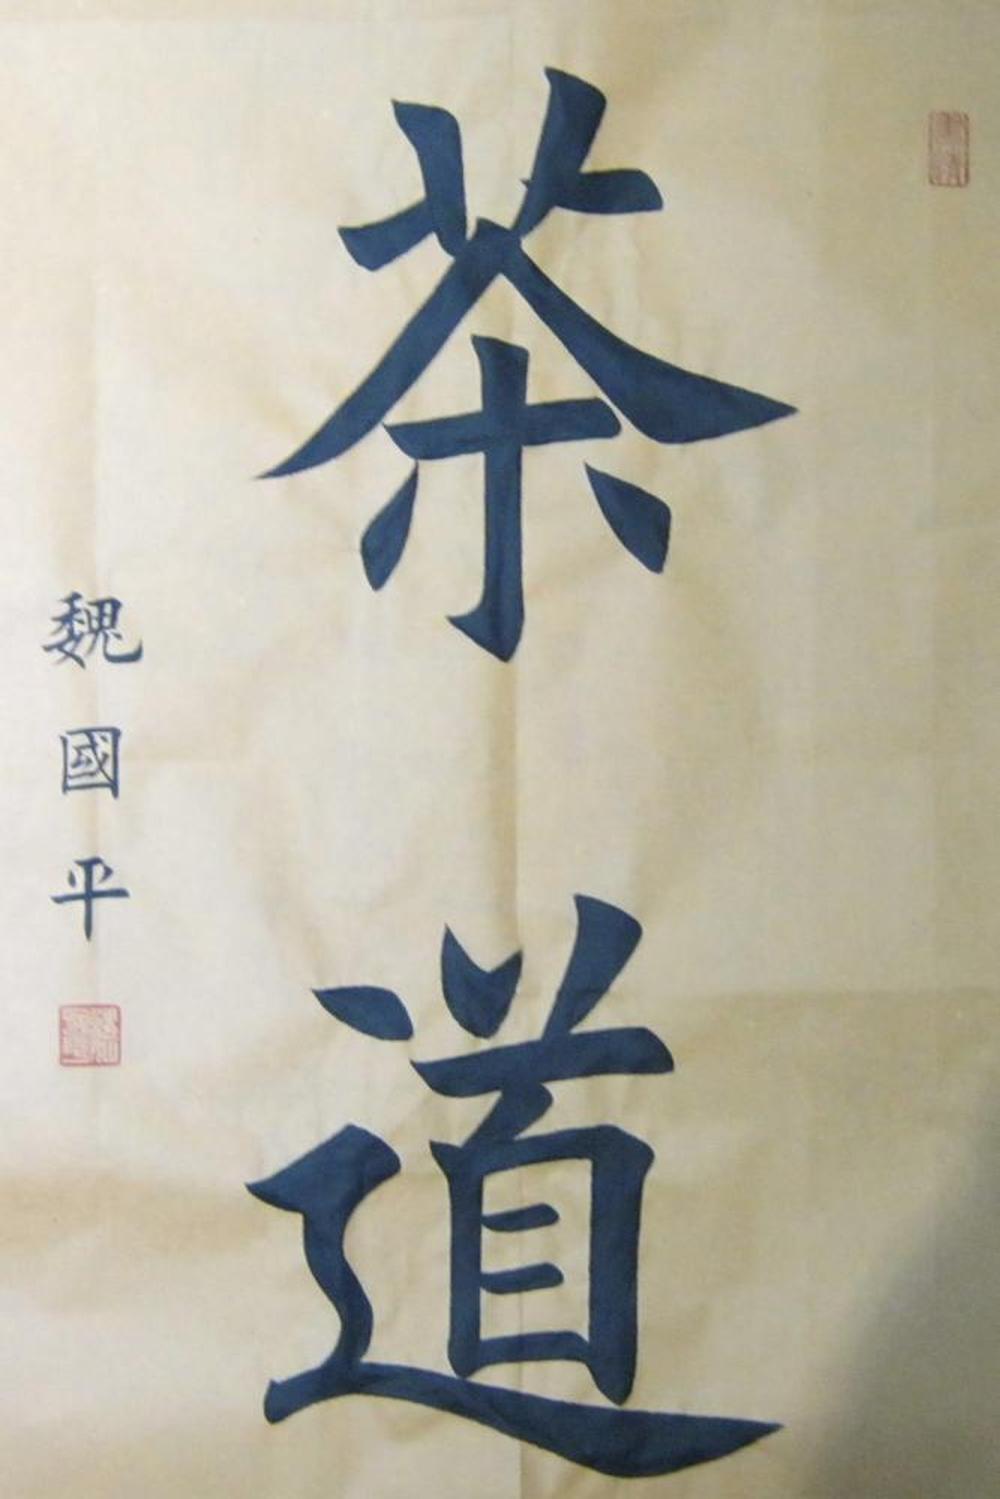 茶道
魏國平